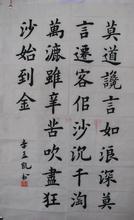 莫道讒言如浪深莫
言遷客佀沙沉千淘
萬漉雖辛苦吹盡狂
沙始到金